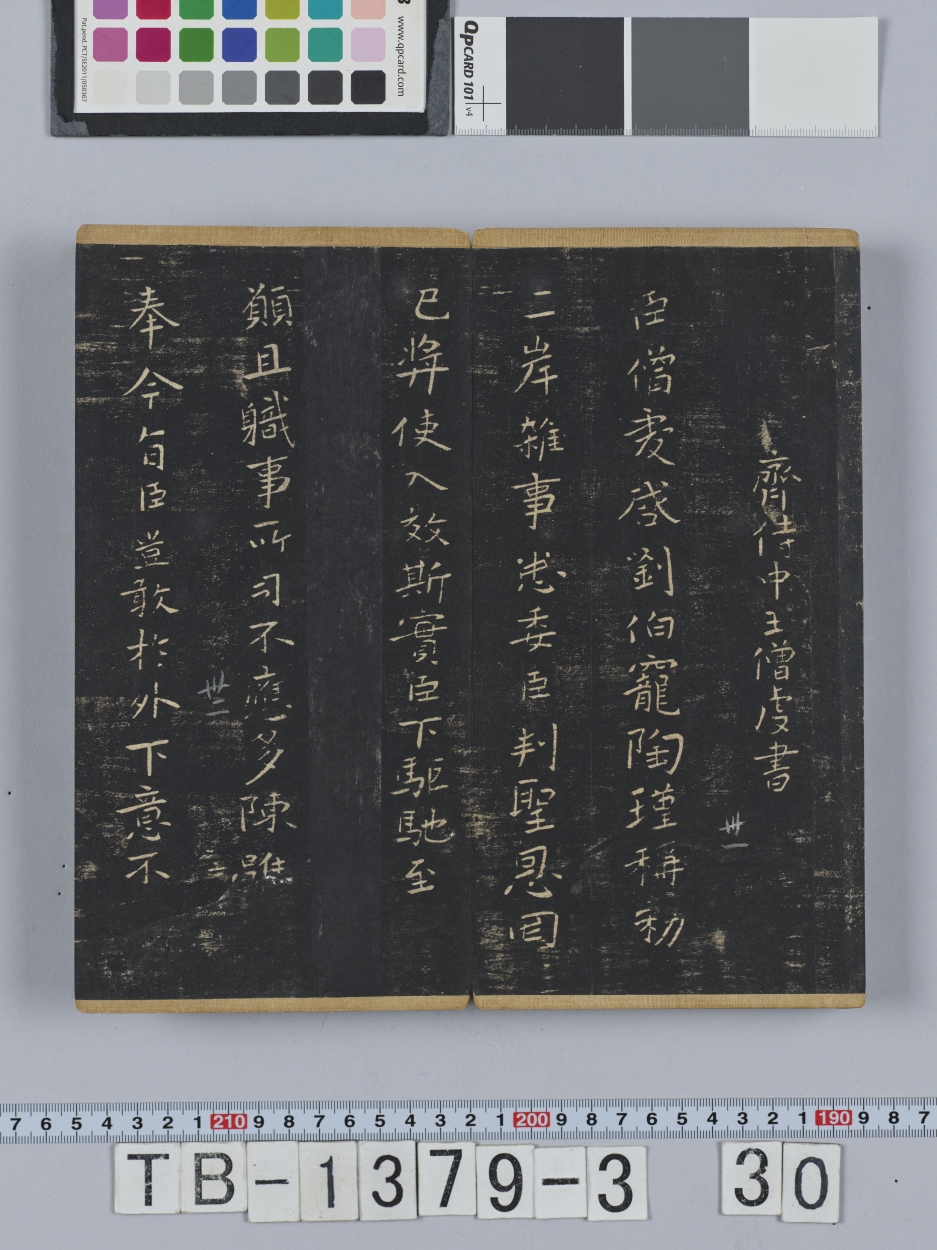 www.qpcard.com
Pat.pend. PCT/SE2011/050367
QPCARD 101 v4
齊侍中王僧虔書
卅一
臣僧虔啓劉伯寵陶瑾稱勅
二岸雜事悉委臣判聖恩罔
已弉使入效斯實臣下驅馳至
願且軄事所司不應多陳雖
卅二
奉今旨臣豈敢於外下意不
7 6 5 4 3 2 1 210 9 8 7 6 5 4 3 2 1 200 9 8 7 6 5 4 3 2 1 190 9 8 7
TB-1379-3 30